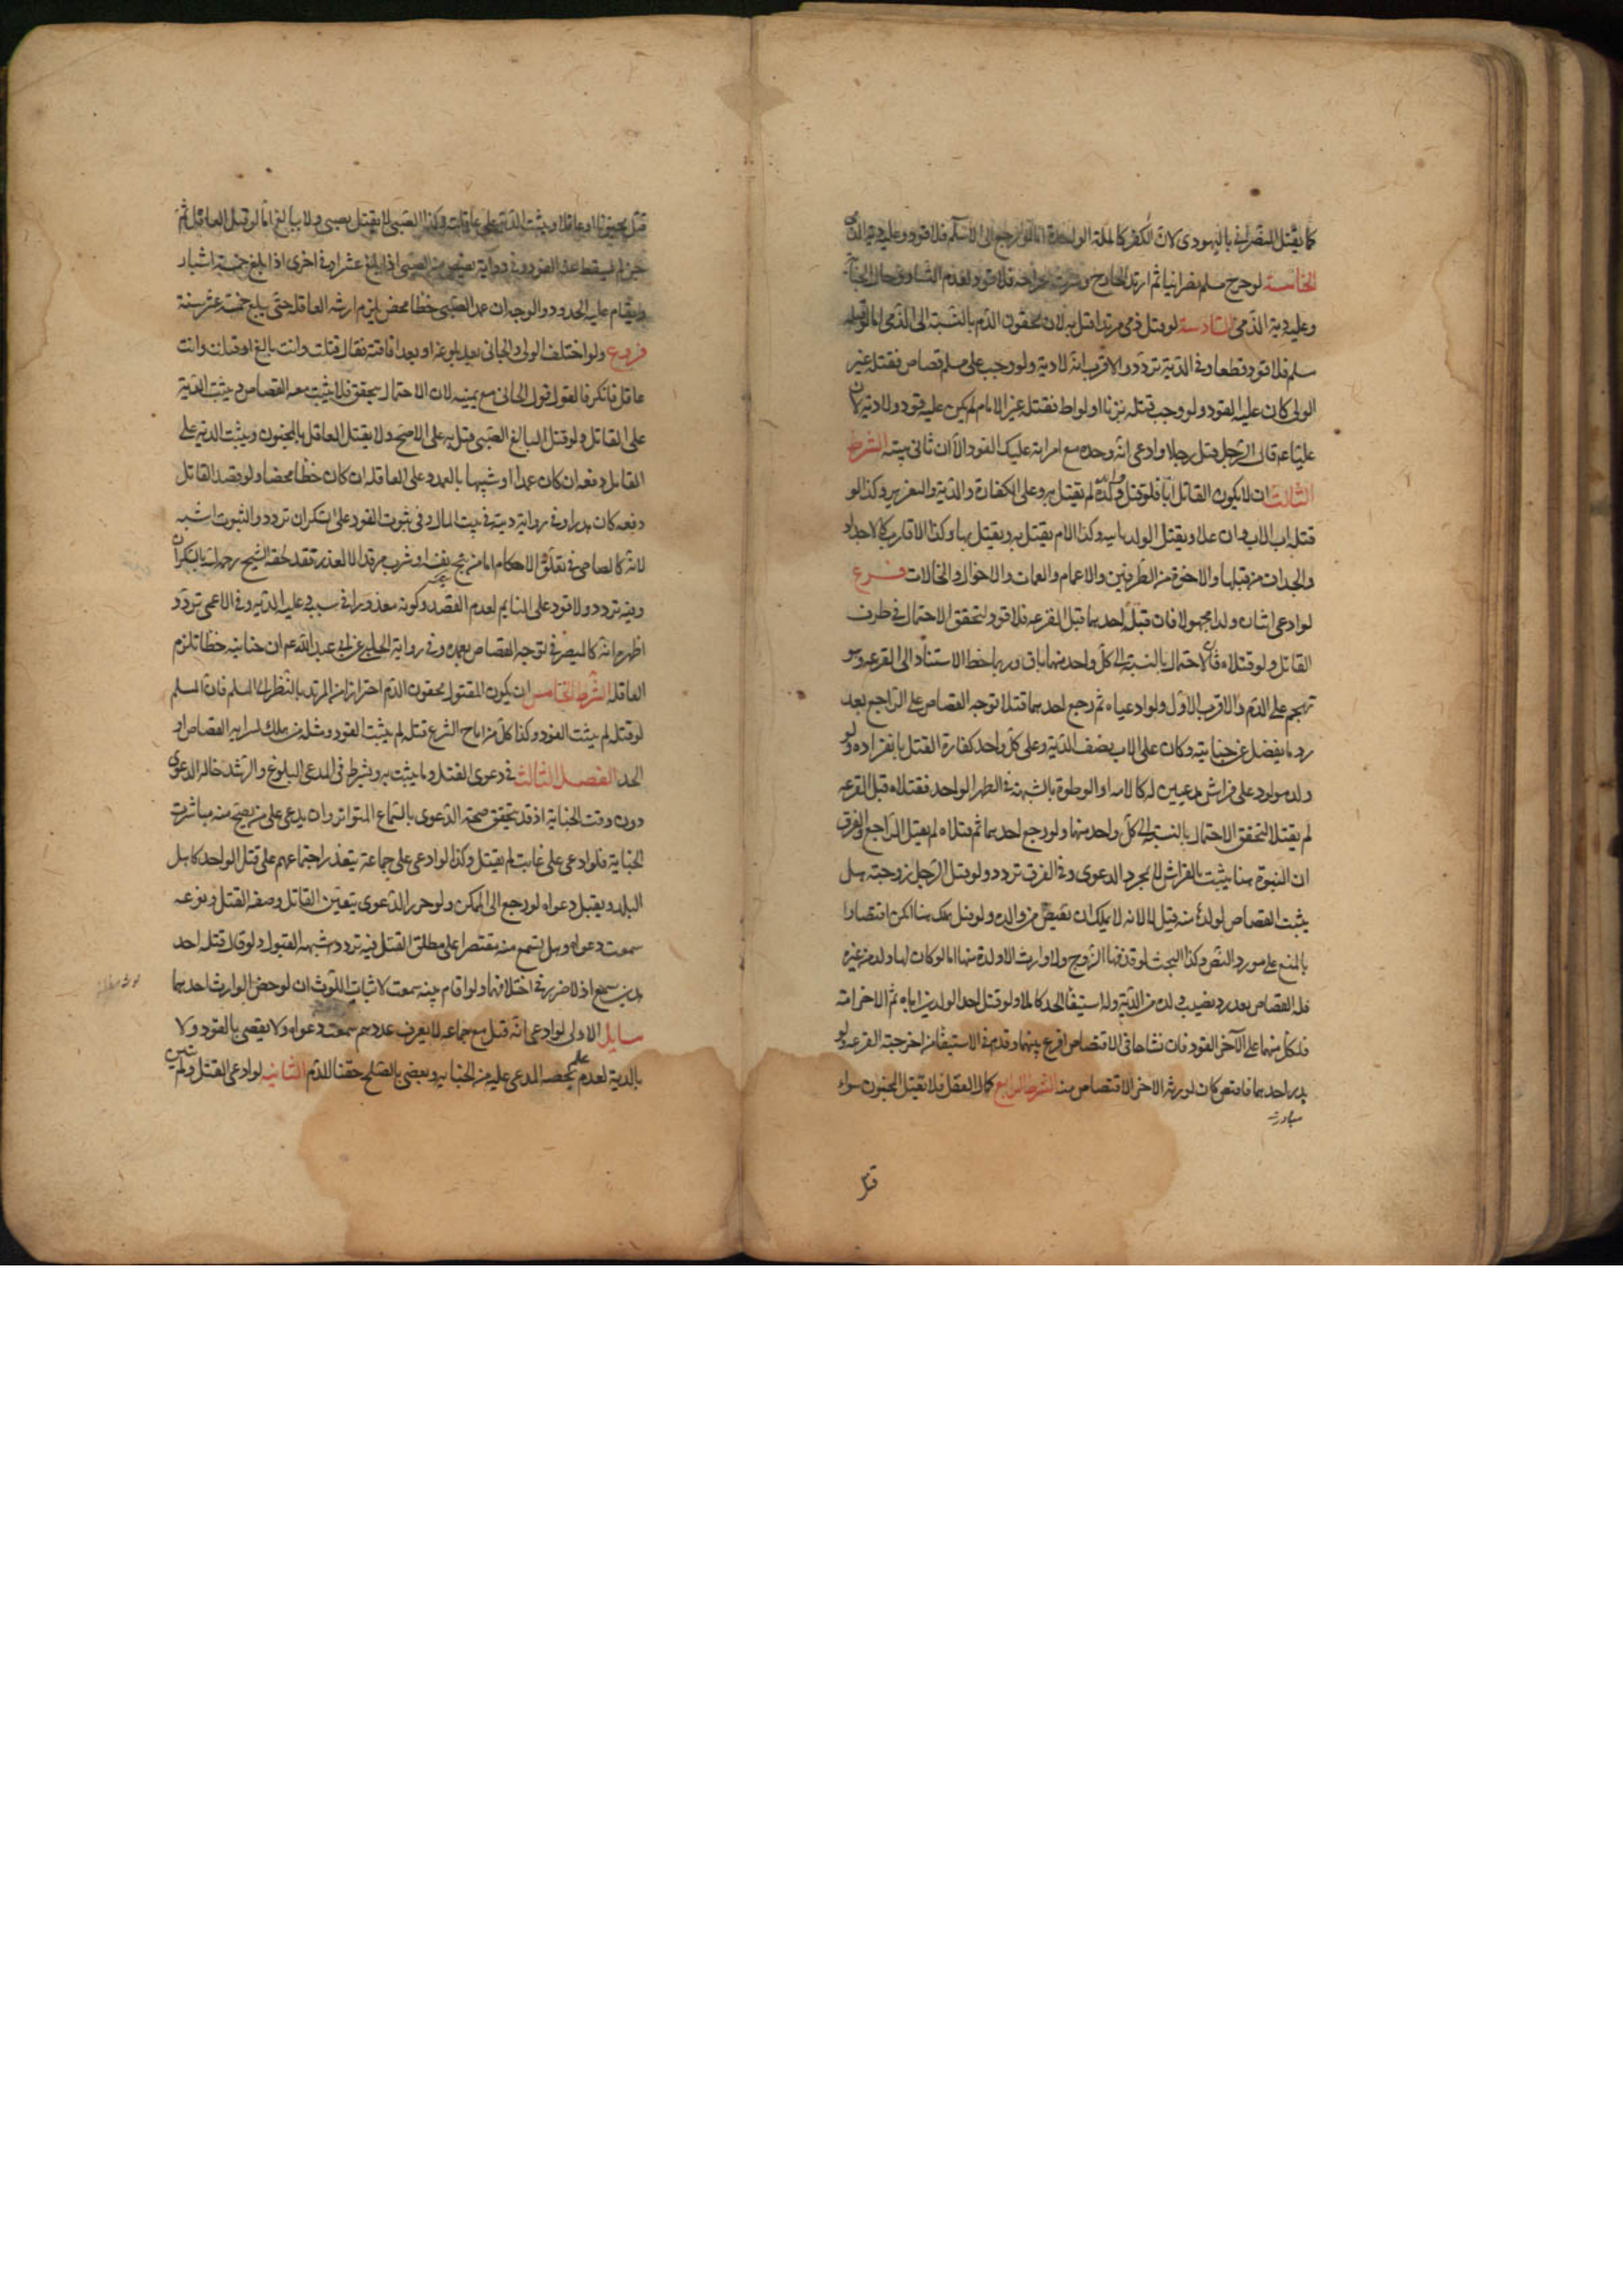 كما يقتل النصراني باليهودي لان الكفر كالملة الواحدة اما لو رجع الى الاسلام فلا قود وعليه دية الذمي
الخامسة لو جرح مسلم نصرانيا ثم ارتد الجارح وسرت جراحته فلا قود لعدم التساوي حال الجناية
وعليه دية الذمي السادسة لو قتل ذمي مرتدا قتل به لانه محقون الدم بالنسبة الى الذمي اما لو قتله
مسلم فلا قود قطعا وفي الدية تردد والاقرب انه لا دية ولو وجب على مسلم قصاص فقتله غير
الولي كان عليه القود ولو وجب قتله بزنا او لواط فقتله غير الامام لم يكن عليه قود ولا دية لان
عليا عم قال لرجل قتل رجلا وادعى انه وجده مع امراته عليك القود الا ان تاتي ببينة الشرط
الثالث ان لا يكون القاتل ابا فلو قتل ولده لم يقتل به وعليه الكفارة والدية والتعزير وكذا لو
قتله اب الاب وان علا ويقتل الولد بابيه وكذا الام يقتل به ويقتل بها وكذا الاقارب كالاجداد
والجدات من قبلها والاخوة من الطرفين والاعمام والعمات والاخوال والخالات فرع
لو ادعى اثنان ولدا مجهولا فان قتله احدهما قبل القرعة فلا قود لتحقق الاحتمال في طرف
القاتل ولو قتلاه فان الاحتمال بالنسبة الى كل واحد منهما باق وربما خطر الاستناد الى القرعة وهو
تهجم على الدم والاقرب الاول ولو ادعياه ثم رجع احدهما وقتلاه توجه القصاص على الراجع بعد
رد ما يفضل عن جنايته وكان على الاب نصف الدية وعلى كل واحد كفارة القتل بانفراده ولو
ولد مولود على فراش مدعيين له كالامة او الموطوة بالشبهة في الطهر الواحد فقتلاه قبل القرعة
لم يقتلا لتحقق الاحتمال بالنسبة الى كل واحد منهما ولو رجع احدهما ثم قتلاه لم يقتل الراجع والفرق
ان البنوة هنا يثبت بالفراش لا بمجرد الدعوى وفي الفرق تردد ولو قتل الرجل زوجته هل
يثبت القصاص لولده منه قيل لا لانه لا يملك ان يقتص من والده ولو قيل يملك هنا امكن اقتصارا
بالمنع على مورد النص وكذا البحث لو قذفها الزوج ولا وارث الا ولده منها اما لو كان لها ولد من غيره
فله القصاص بعد رد نصيب ولده من الدية وله استيفاء الحد كاملا ولو قتل احد الولدين اباه ثم الاخر امه
فلكل منهما على الآخر القود فان تشاحا في الاقتصاص اقرع بينهما وقدم في الاستيفاء من اخرجته القرعة ولو
بدر احدهما فاقتص كان لورثة الاخر الاقتصاص منه الشرط الرابع كمال العقل فلا يقتل المجنون سواء
قتل
قتل مجنونا او عاقلا ويثبت الدية على عاقلته وكذا الصبي لا يقتل بصبي ولا ببالغ اما لو قتل العاقل ثم
جن لم يسقط عنه القود وفي رواية يقتص من الصبي اذا بلغ عشرا وفي اخرى اذا بلغ خمسة اشبار
ويقام عليه الحدود والوجه ان عمد الصبي خطا محض يلزم ارشه العاقلة حتى يبلغ خمسة عشر سنة
فروع ولو اختلف الولي والجاني بعد بلوغه او بعد افاقته فقال قتلت وانت بالغ او قتلت وانت
عاقل فانكر فالقول قول الجاني مع يمينه لان الاحتمال يتحقق فلا يثبت معه القصاص ويثبت الدية
على القاتل ولو قتل البالغ الصبي قتل به على الاصح ولا يقتل العاقل بالمجنون ويثبت الدية على
القاتل وفعه ان كان عمدا او شبيها بالعمد وعلى العاقلة ان كان خطا محضا ولو قصد القاتل
دفعه كان هدرا وفي رواية ديته في بيت المال وفي ثبوت القود على السكران تردد والثبوت اشبه
لانه كالصاحي في تعلق الاحكام اما من بنج نفسه او شرب مرقدا لا لعذر فقد الحقه الشيخ رحمه الله بالسكران
وفيه تردد ولا قود على النايم لعدم القصد وكونه معذورا في سببه وعليه الدية وفي الاعمى تردد
اظهره انه كالمبصر في توجه القصاص بعمده وفي رواية الحلبي عن ابي عبد الله عم ان جنايته خطا تلزم
العاقلة الشرط الخامس ان يكون المقتول محقون الدم احترازا من المرتد بالنظر الى المسلم فان المسلم
لو قتله لم يثبت القود وكذا كل من اباح الشرع قتله لم يثبت القود ومثله من هلك بسراية القصاص او
الحد الفصل الثالث في دعوى القتل وما يثبت به ويشترط في المدعي البلوغ والرشد حالة الدعوى
دون وقت الجناية اذ قد يتحقق صحة الدعوى بالسماع المتواتر وان يدعي على من يصح منه مباشرة
الجناية فلو ادعى على غايب لم يقبل وكذا لو ادعى على جماعة يتعذر اجتماعهم على قتل الواحد كاهل
البلد ويقبل دعواه لو رجع الى الممكن ولو حرر الدعوى بتعيين القاتل وصفة القتل ونوعه
سمعت دعواه وهل يسمع منه مقتصرا على مطلق القتل فيه تردد اشبهه القبول ولو قال قتله احد
هذين سمع اذ لا ضرر في احلافهما ولو اقام بينة سمعت لاثبات اللوث ان لو خص الوارث احدهما
مسايل الاولى لو ادعى انه قتل مع جماعة لا يعرف عددهم سمعت دعواه ولا يقضى بالقود ولا
بالدية لعدم علم بحصة المدعى عليه من الجناية ويقضى بالصلح حقنا للدم الثانية لو ادعى القتل ولم